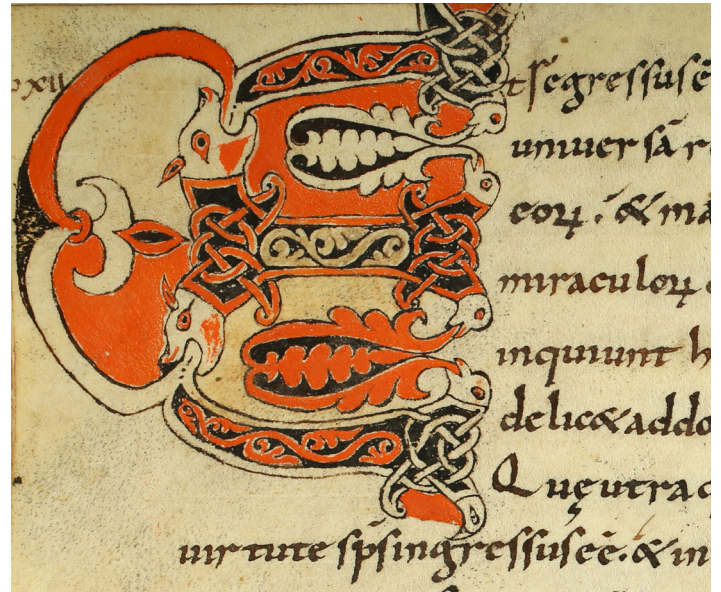 xii
tſegreſſuſē
uniuerſā r
eoꝝ · & ma
miraculoꝝ
inquiunt h
delic& addo
Quęutraq
uirtute ſp̄ſingreſſuſeē · & in